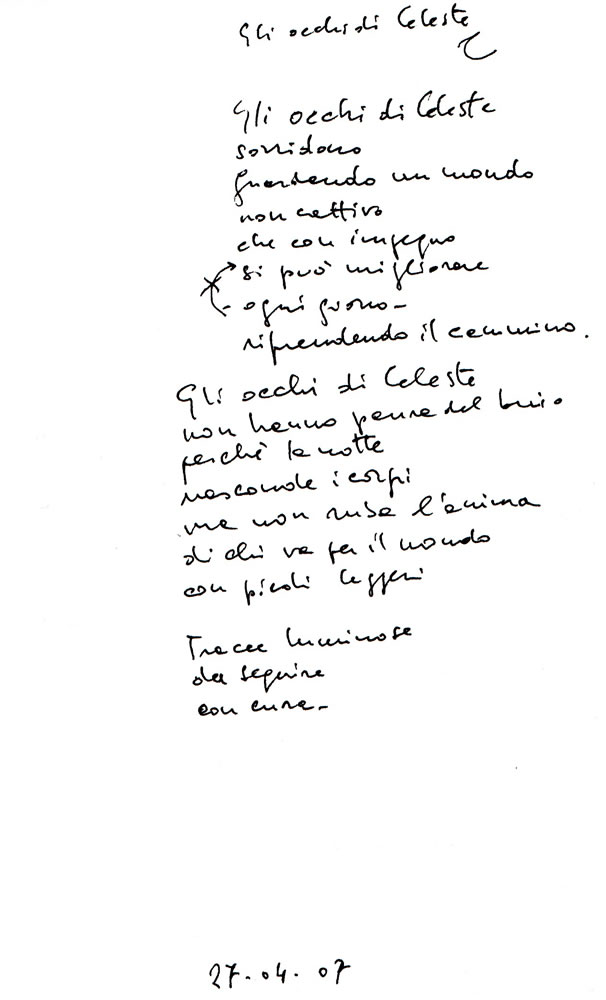 Gli occhi di Celeste
Gli occhi di Celeste
sorridono
guardando un mondo
non cattivo
che con impegno
si può migliorare
ogni giorno-
riprendendo il cammino.
Gli occhi di Celeste
non hanno paura del buio
perchè la notte
nasconde i corpi
ma non ruba l'anima
di chi va per il mondo
con piedi leggeri
Tracce luminose
da seguire
con cura-
27.04.07